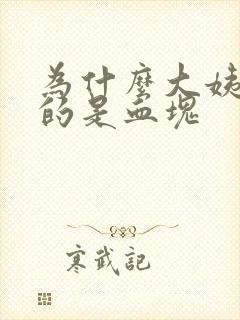 為什麼大姨
的是血塊
寒武記